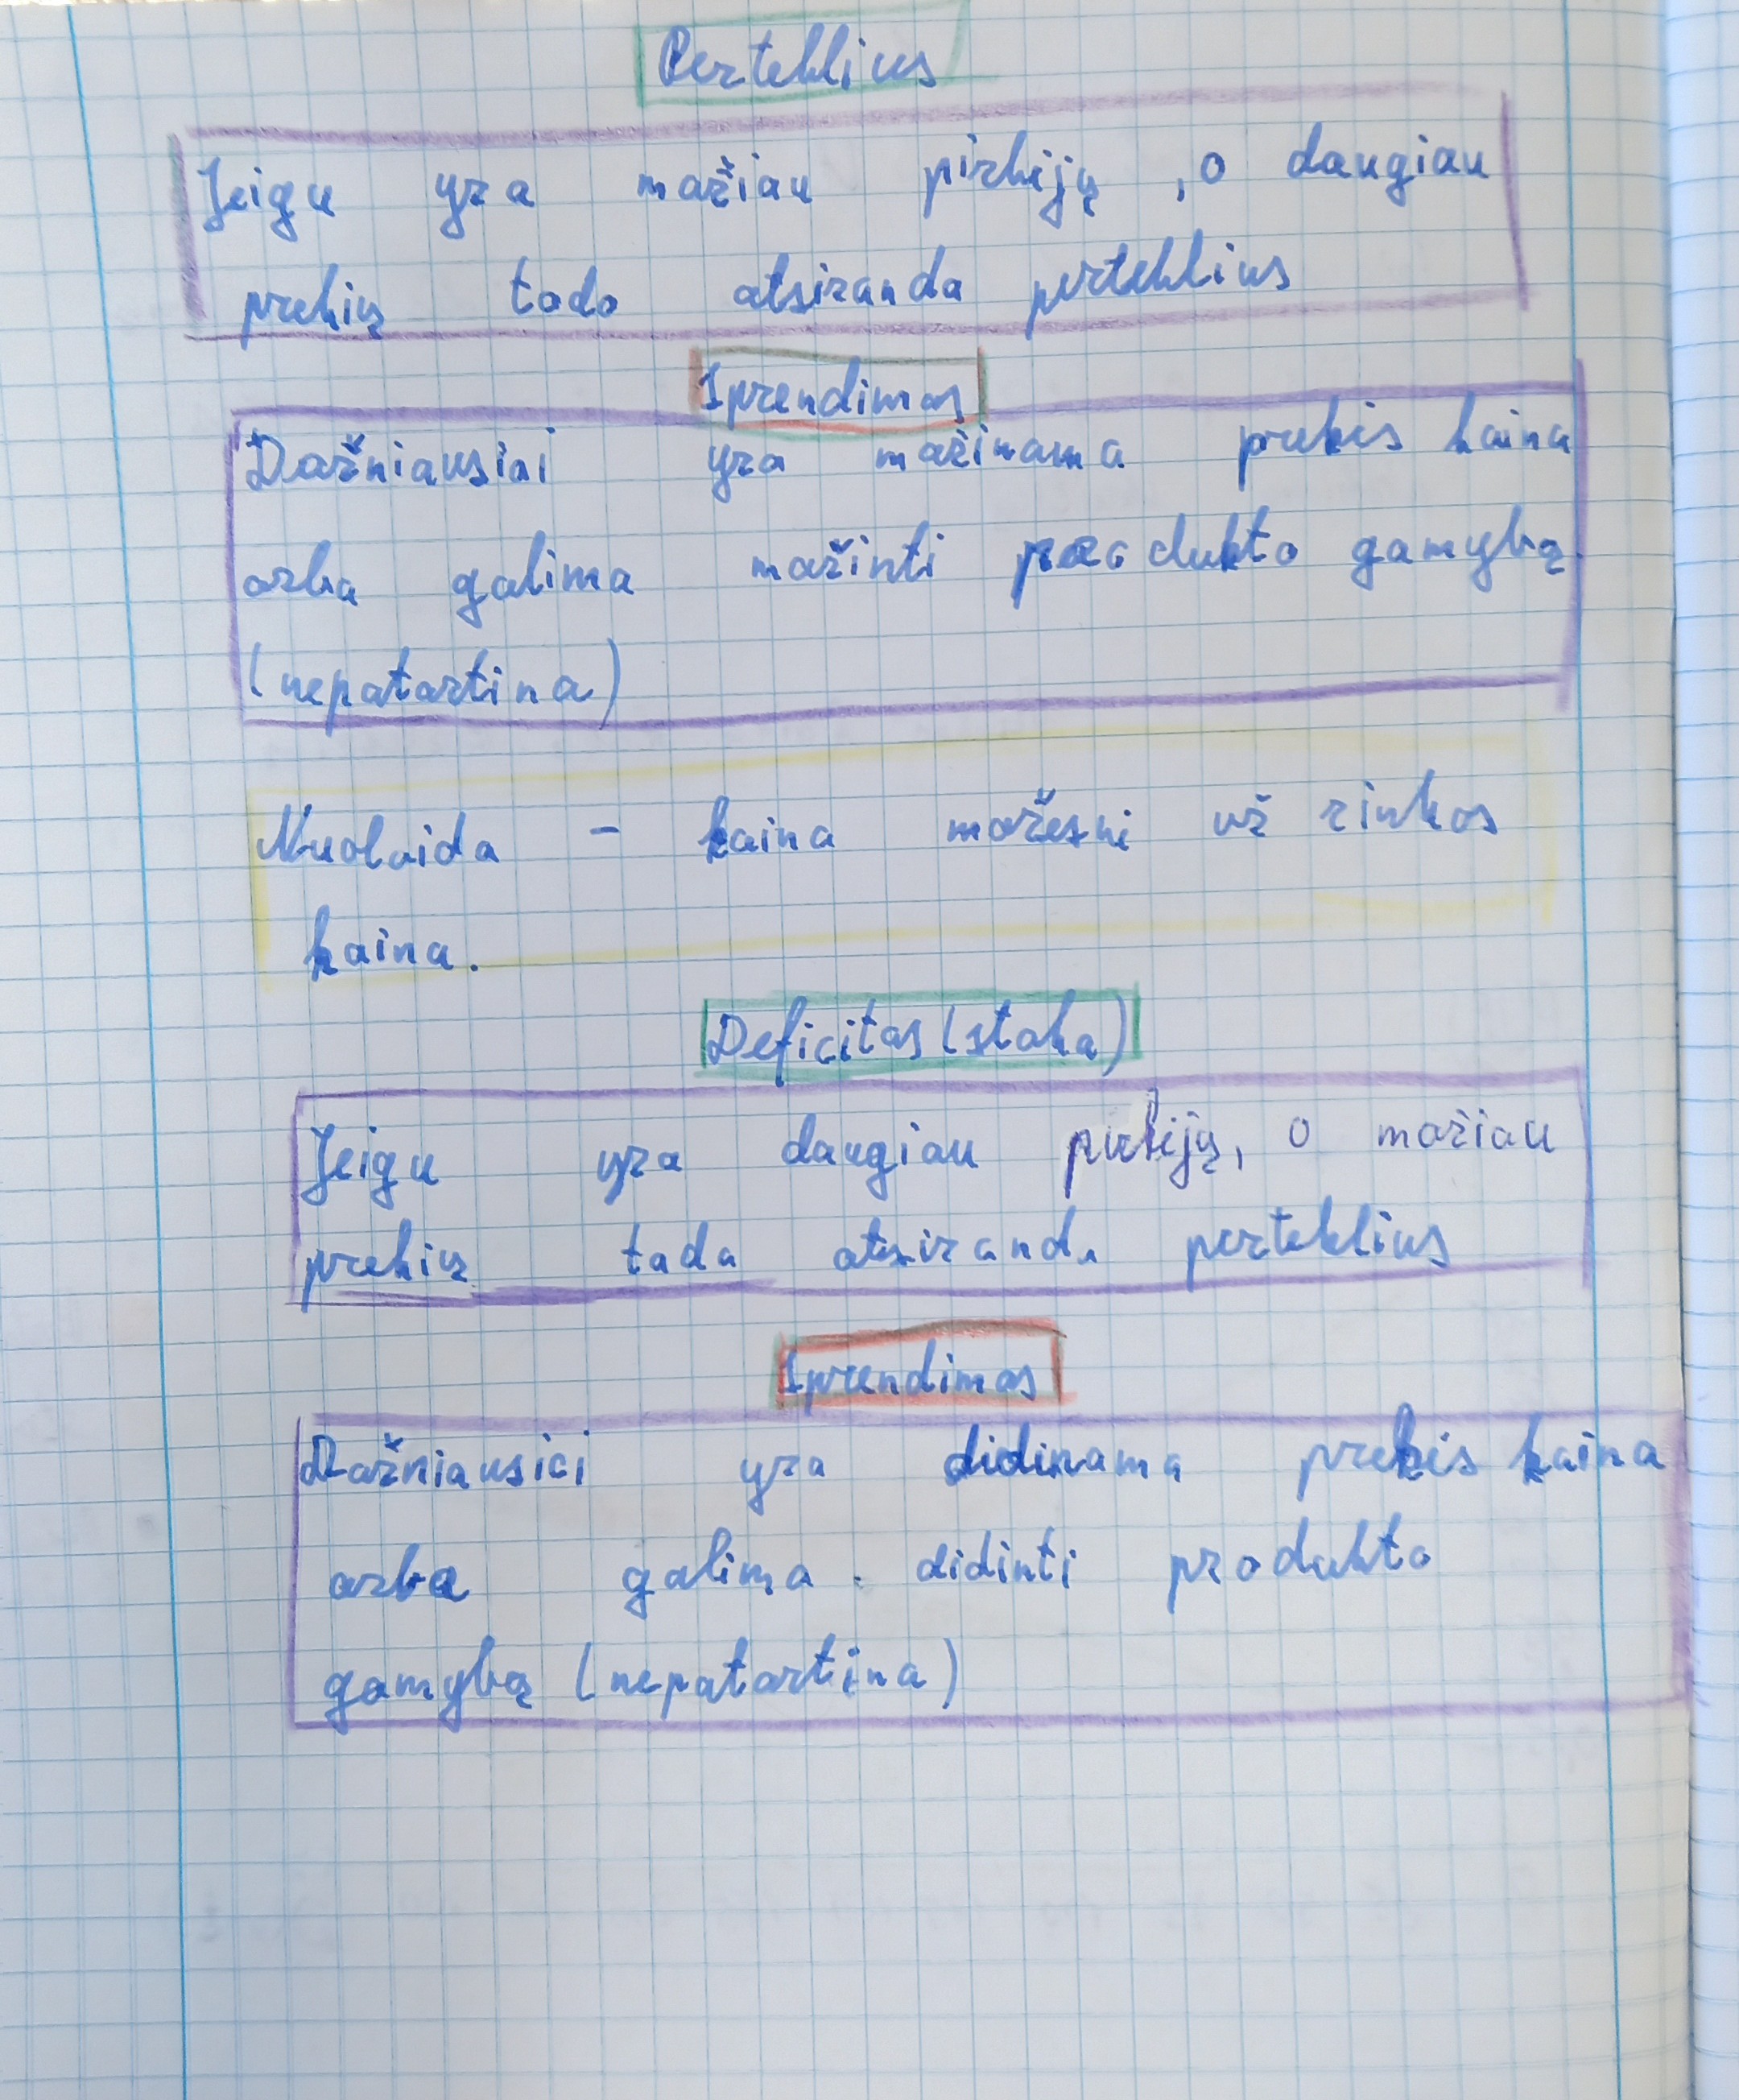 Perteklius
Jeigu yra mažiau pirkėjų, o daugiau
prekių tada atsiranda perteklius
Sprendimas
Dažniausiai yra mažinama prekės kaina
arba galima mažinti produkto gamybą.
(nepatartina)
Nuolaida – kaina mažesnė už rinkos
kaina.
Deficitas (stoka)
Jeigu yra daugiau pirkėjų, o mažiau
prekių tada atsiranda perteklius
Sprendimas
Dažniausiai yra didinama prekės kaina
arba galima didinti produkto
gamybą (nepatartina)